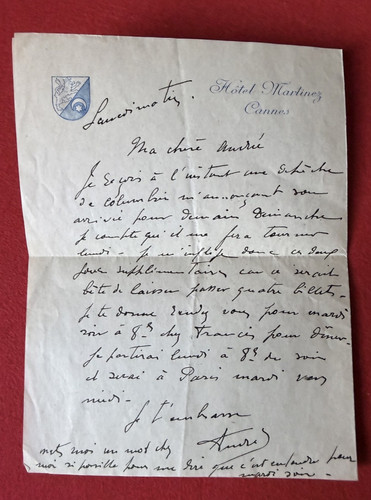 Hôtel Martinez
Cannes
Samedi matin.
Ma chère Andrée
Je reçois à l'instant une dépêche
de Columbia m'annonçant son
arrivée pour demain Dimanche
Je compte qu'il me fera tourner
lundi - Je donc ces deux
jours supplémentaires car ce serait
bête de laisser passer quatre billets -
Je te donne rendez vous pour mardi
soir à 8h chez Francis pour dîner -
Je partirai lundi à 8h du soir
et serai à Paris mardi vers
midi -
Je t'embrasse
André
mets moi un mot chez
moi si possible pour me dire que c'est entendu pour
mardi soir -